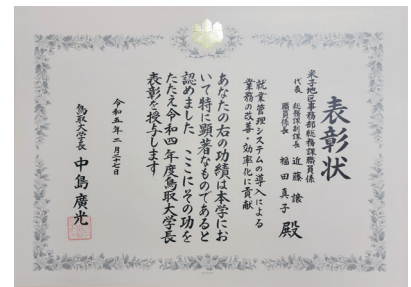 表彰状
米子地区事務部総務課職員係
代表 総務課副課長 近藤 譲
職員係長 福田 真子 殿
就業管理システムの導入による
業務の改善・効率化に貢献
あなたの右の功績は本学にお
いて特に顕著なものであると
認めました ここにその功を
たたえ令和四年度鳥取大学長
表彰を授与します
令和五年二月二十七日
鳥取大学長 中島 廣光